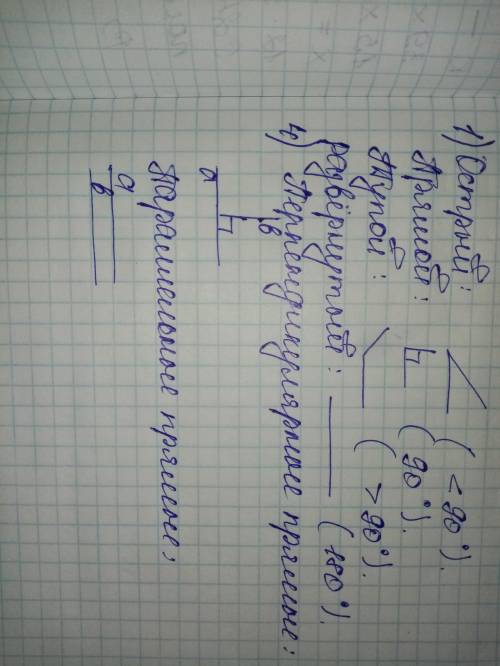 1) Острый: (< 90°).
Прямой: (90°).
Тупой: (> 90°).
развёрнутый: (180°).
4) Перпендикулярные прямые:
в
а
Параллельные прямые:
а
в